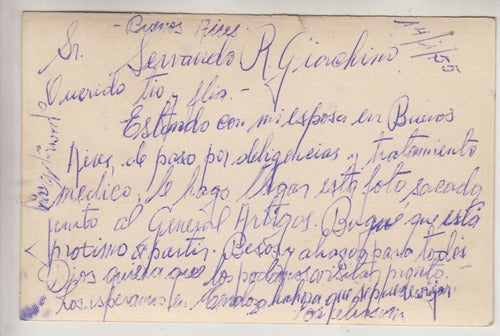 - Buenos Aires -
14/1/55
Sr. Servando R. Giachino.
Querido tio y flia. -
Estando con mi esposa en Buenos
Aires, de paso por deligencias y tratamiento
medico, le hago llegar esta foto sacada
junto al General Artigas. Buque que está
proximo a partir. Besos y abrazos para todos
Dios quiera que los podamos visitar pronto. -
Los esperamos en